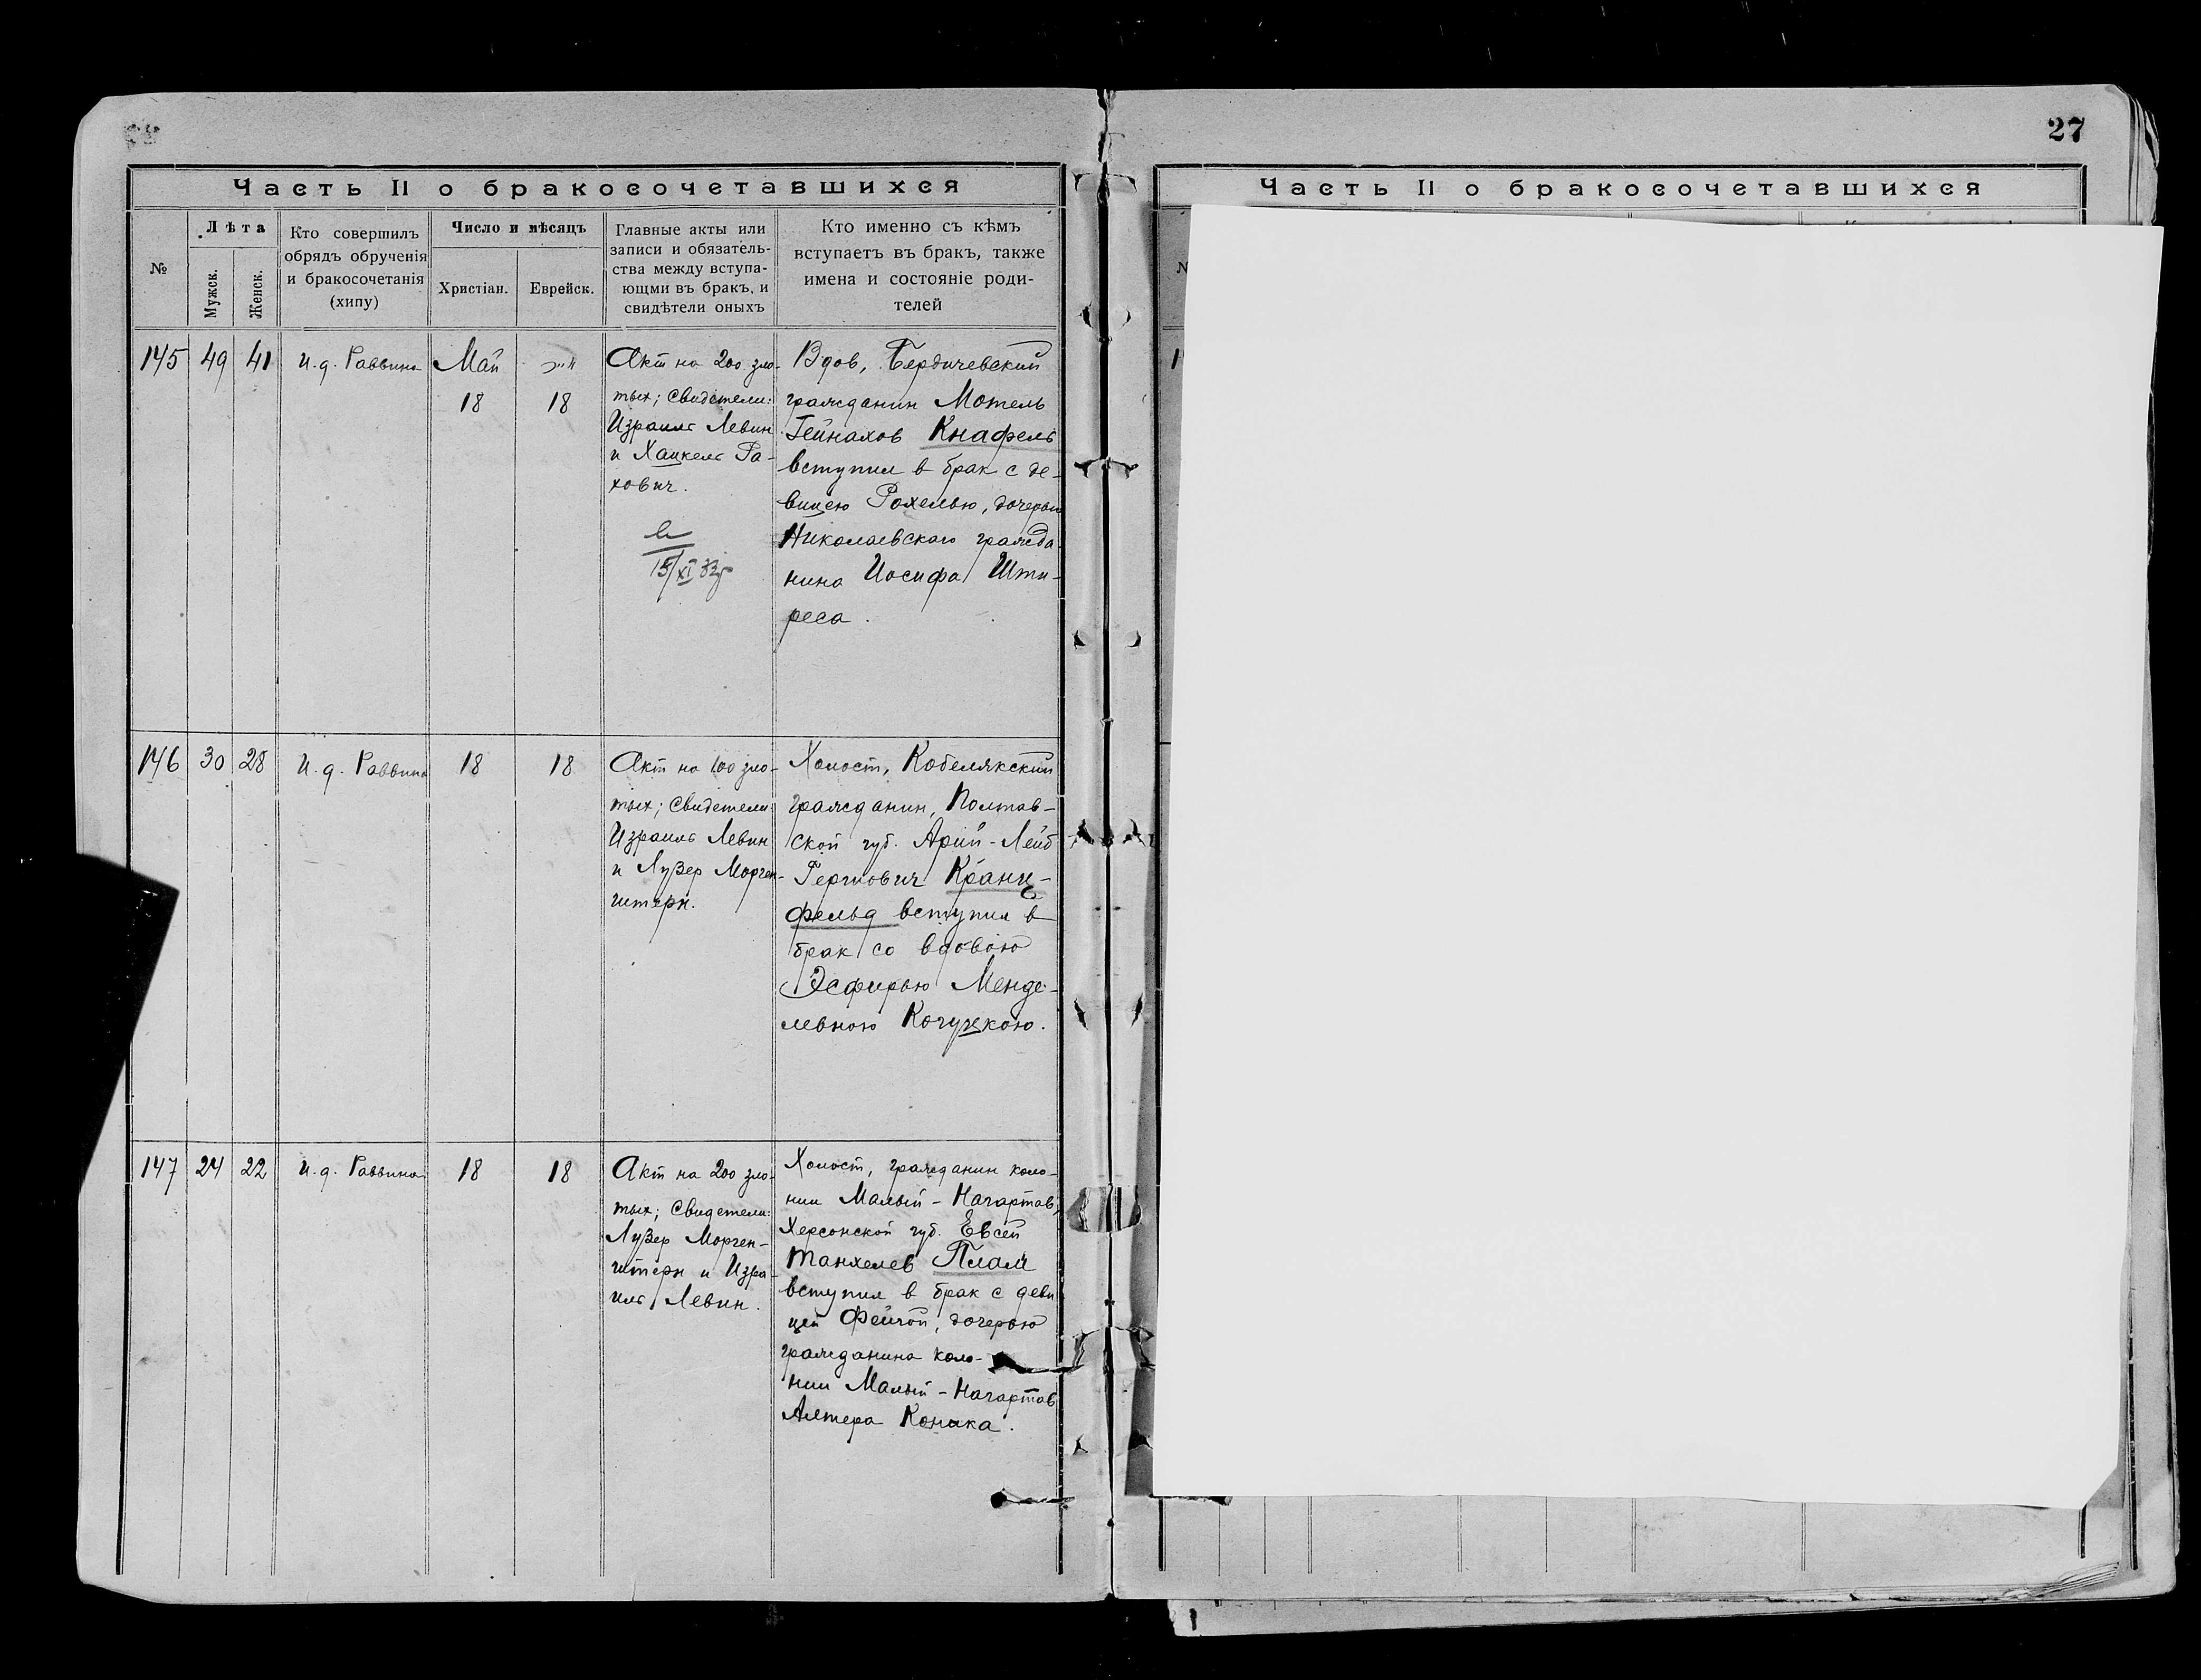 27
Часть II о бракосочетавшихся
№
Лѣта
Мужск.
Женск.
Кто совершилъ
обрядъ обрученія
и бракосочетанія
(хипу)
Число и мѣсяцъ
Христіан.
Еврейск.
Главные акты или
записи и обязатель-
ства между вступа-
ющми въ бракъ, и
свидѣтели оныхъ
Кто именно съ кѣмъ
вступаетъ въ бракъ, также
имена и состояніе роди-
телей
145
49
41
И. д. Раввина
Май
18
18
Акт на 200 зло-
тых; Свидетели:
Израиль Левин
и Хацкель Ра-
хович.
15/XI 33г
Вдов, Бердичевский
гражданин Мотель
Гейнахов Кнафель
вступил в брак с де-
вицею Рохелью, дочерью
Николаевского гражда-
нина Иосифа Шти-
реса.
146
30
28
И. д. Раввина
18
18
Акт на 100 зло-
тых; Свидетели:
Израиль Левин
и Лузер Морген-
штерн.
Холост, Кобелякский
гражданин, Полтав-
ской губ. Арий-Лейб
Герцович Кранц-
фельд вступил в
брак со вдовою
Эсфирью Менде-
левною
147
24
22
И. д. Раввина
18
18
Акт на 200 зло-
тых; Свидетели:
Лузер Морген-
штерн и Изра-
иль Левин.
Холост, гражданин коло-
нии Малый-Нагартав,
Херсонской губ. Евсей
Танхелев Плам
вступил в брак с деви
цей Фейгой, дочерью
гражданина коло-
нии Малый-Нагартав
Алтера Коника.
Часть II о бракосочетавшихся